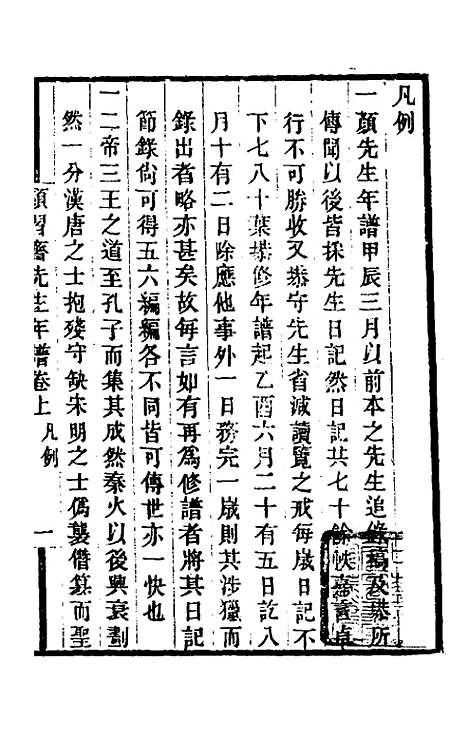 凡例
一顏先生年譜甲辰三月以前本之先生追錄稿及㙔所
傳聞以後皆採先生日記然日記共七十餘帙嘉言卓
行不可勝收又㙔守先生省減讀覽之戒每歲日記不
下七八十葉㙔修年譜起乙酉六月二十有五日訖八
月十有二日除應他事外一日務完一歲則其涉獵而
錄出者略亦甚矣故每言如有再為修譜者將其日記
節錄尙可得五六編編各不同皆可傳世亦一快也
一二帝三王之道至孔子而集其成然秦火以後興衰劃
然一分漢唐之士抱殘守缺宋明之士僞襲僭篡而聖
顏習齋先生年譜卷上 凡例 一